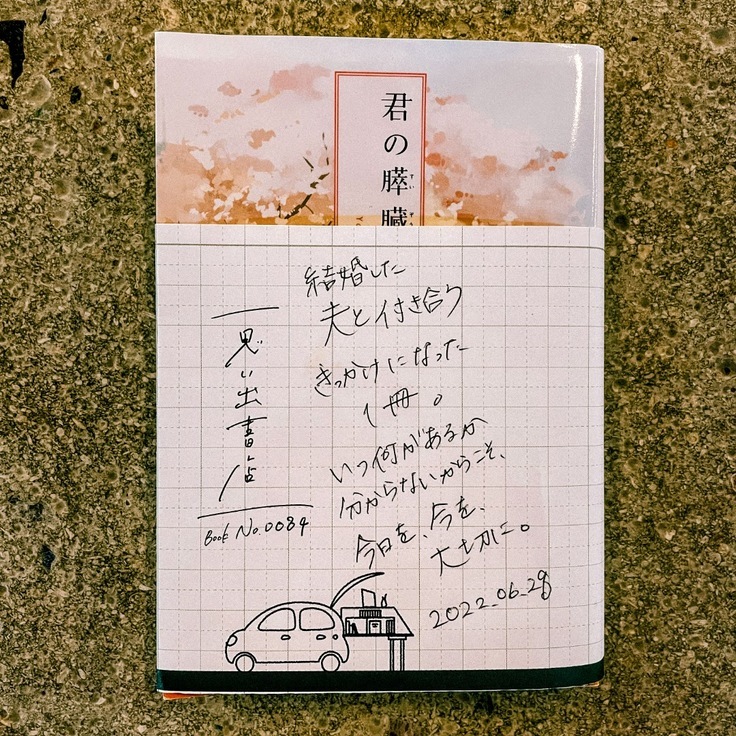 君の膵臓
すい
ぞう
結婚した
夫と付き合う
きっかけになった
1冊。
いつ何があるか
分からないからこそ、
今日を、今を、
大切に。
2022.06.28
思い出書店
Book No.0084